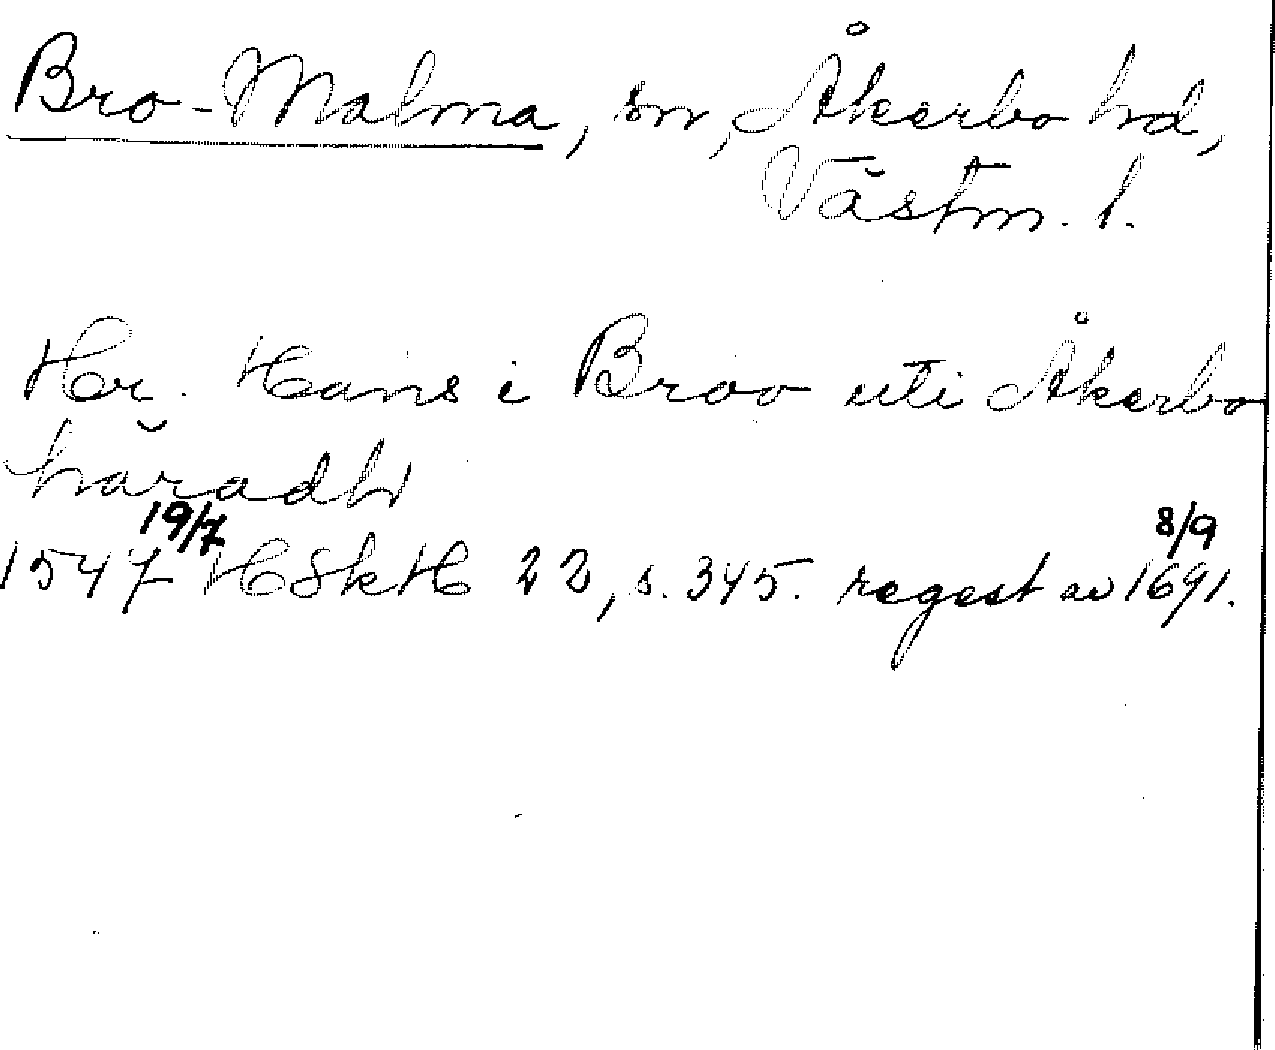 Bro-Malma, sn, Åkerbo hd,
Västm. l.
Hr. Hans i Broo uti Åkerbo
häradh
19/7 8/9
1547 HSkH 22, s. 345. regest av 1691.